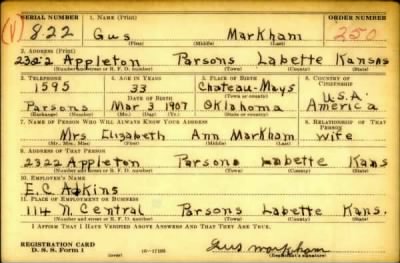 SERIAL NUMBER 1. NAME (Print) ORDER NUMBER
(V) 822 Gus Markham 250
(First) (Middle) (Last)
2. ADDRESS (Print)
2322 Appleton Parsons Labette Kansas
(Number and street or R. F. D. number) (Town) (County) (State)
3. TELEPHONE 4. AGE IN YEARS 5. PLACE OF BIRTH 6. COUNTRY OF CITIZENSHIP
1595 33 Chateau-Mays U.S.A.
DATE OF BIRTH
Parsons Mar 3 1907 Oklahoma America
(Exchange) (Number) (Mo.) (Day) (Yr.) (State or country)
7. NAME OF PERSON WHO WILL ALWAYS KNOW YOUR ADDRESS 8. RELATIONSHIP OF THAT PERSON
Mrs Elizabeth Ann Markham Wife
(Mr., Mrs., Miss) (First) (Middle) (Last)
9. ADDRESS OF THAT PERSON
2322 Appleton Parsons Labette Kans
(Number and street or R. F. D. number) (Town) (County) (State)
10. EMPLOYER'S NAME
E.C. Adkins
11. PLACE OF EMPLOYMENT OR BUSINESS
114 N. Central Parsons Labette Kans.
(Number and street or R. F. D. number) (Town) (County) (State)
I AFFIRM THAT I HAVE VERIFIED ABOVE ANSWERS AND THAT THEY ARE TRUE.
REGISTRATION CARD
D. S. S. Form 1 Gus Markham
(Registrant's signature)